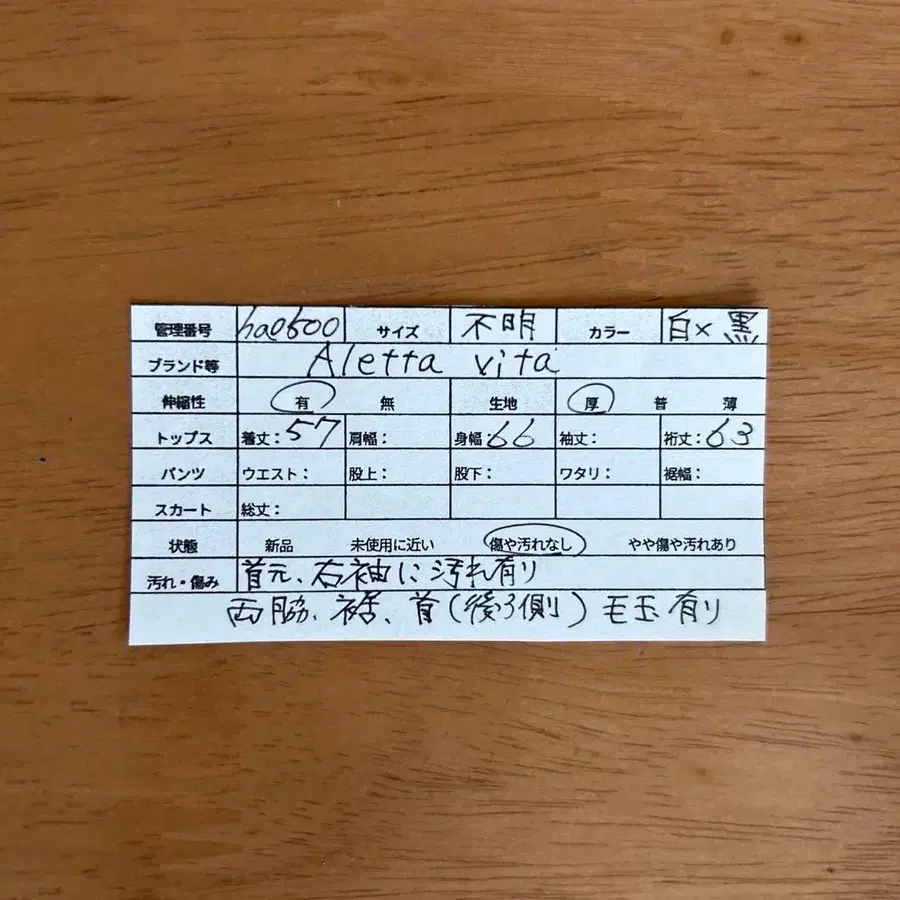 管理番号 hae600 サイズ 不明 カラー 白×黒
ブランド等 Aletta vita
伸縮性 有 無 生地 厚 普 薄
トップス 着丈:57 肩幅: 身幅:66 袖丈: 裄丈:63
パンツ ウエスト: 股上: 股下: ワタリ: 裾幅:
スカート 総丈:
状態 新品 未使用に近い 傷や汚れなし やや傷や汚れあり
汚れ・傷み 首元、右袖に汚れ有り
両脇、裾、首(後ろ側)毛玉有り